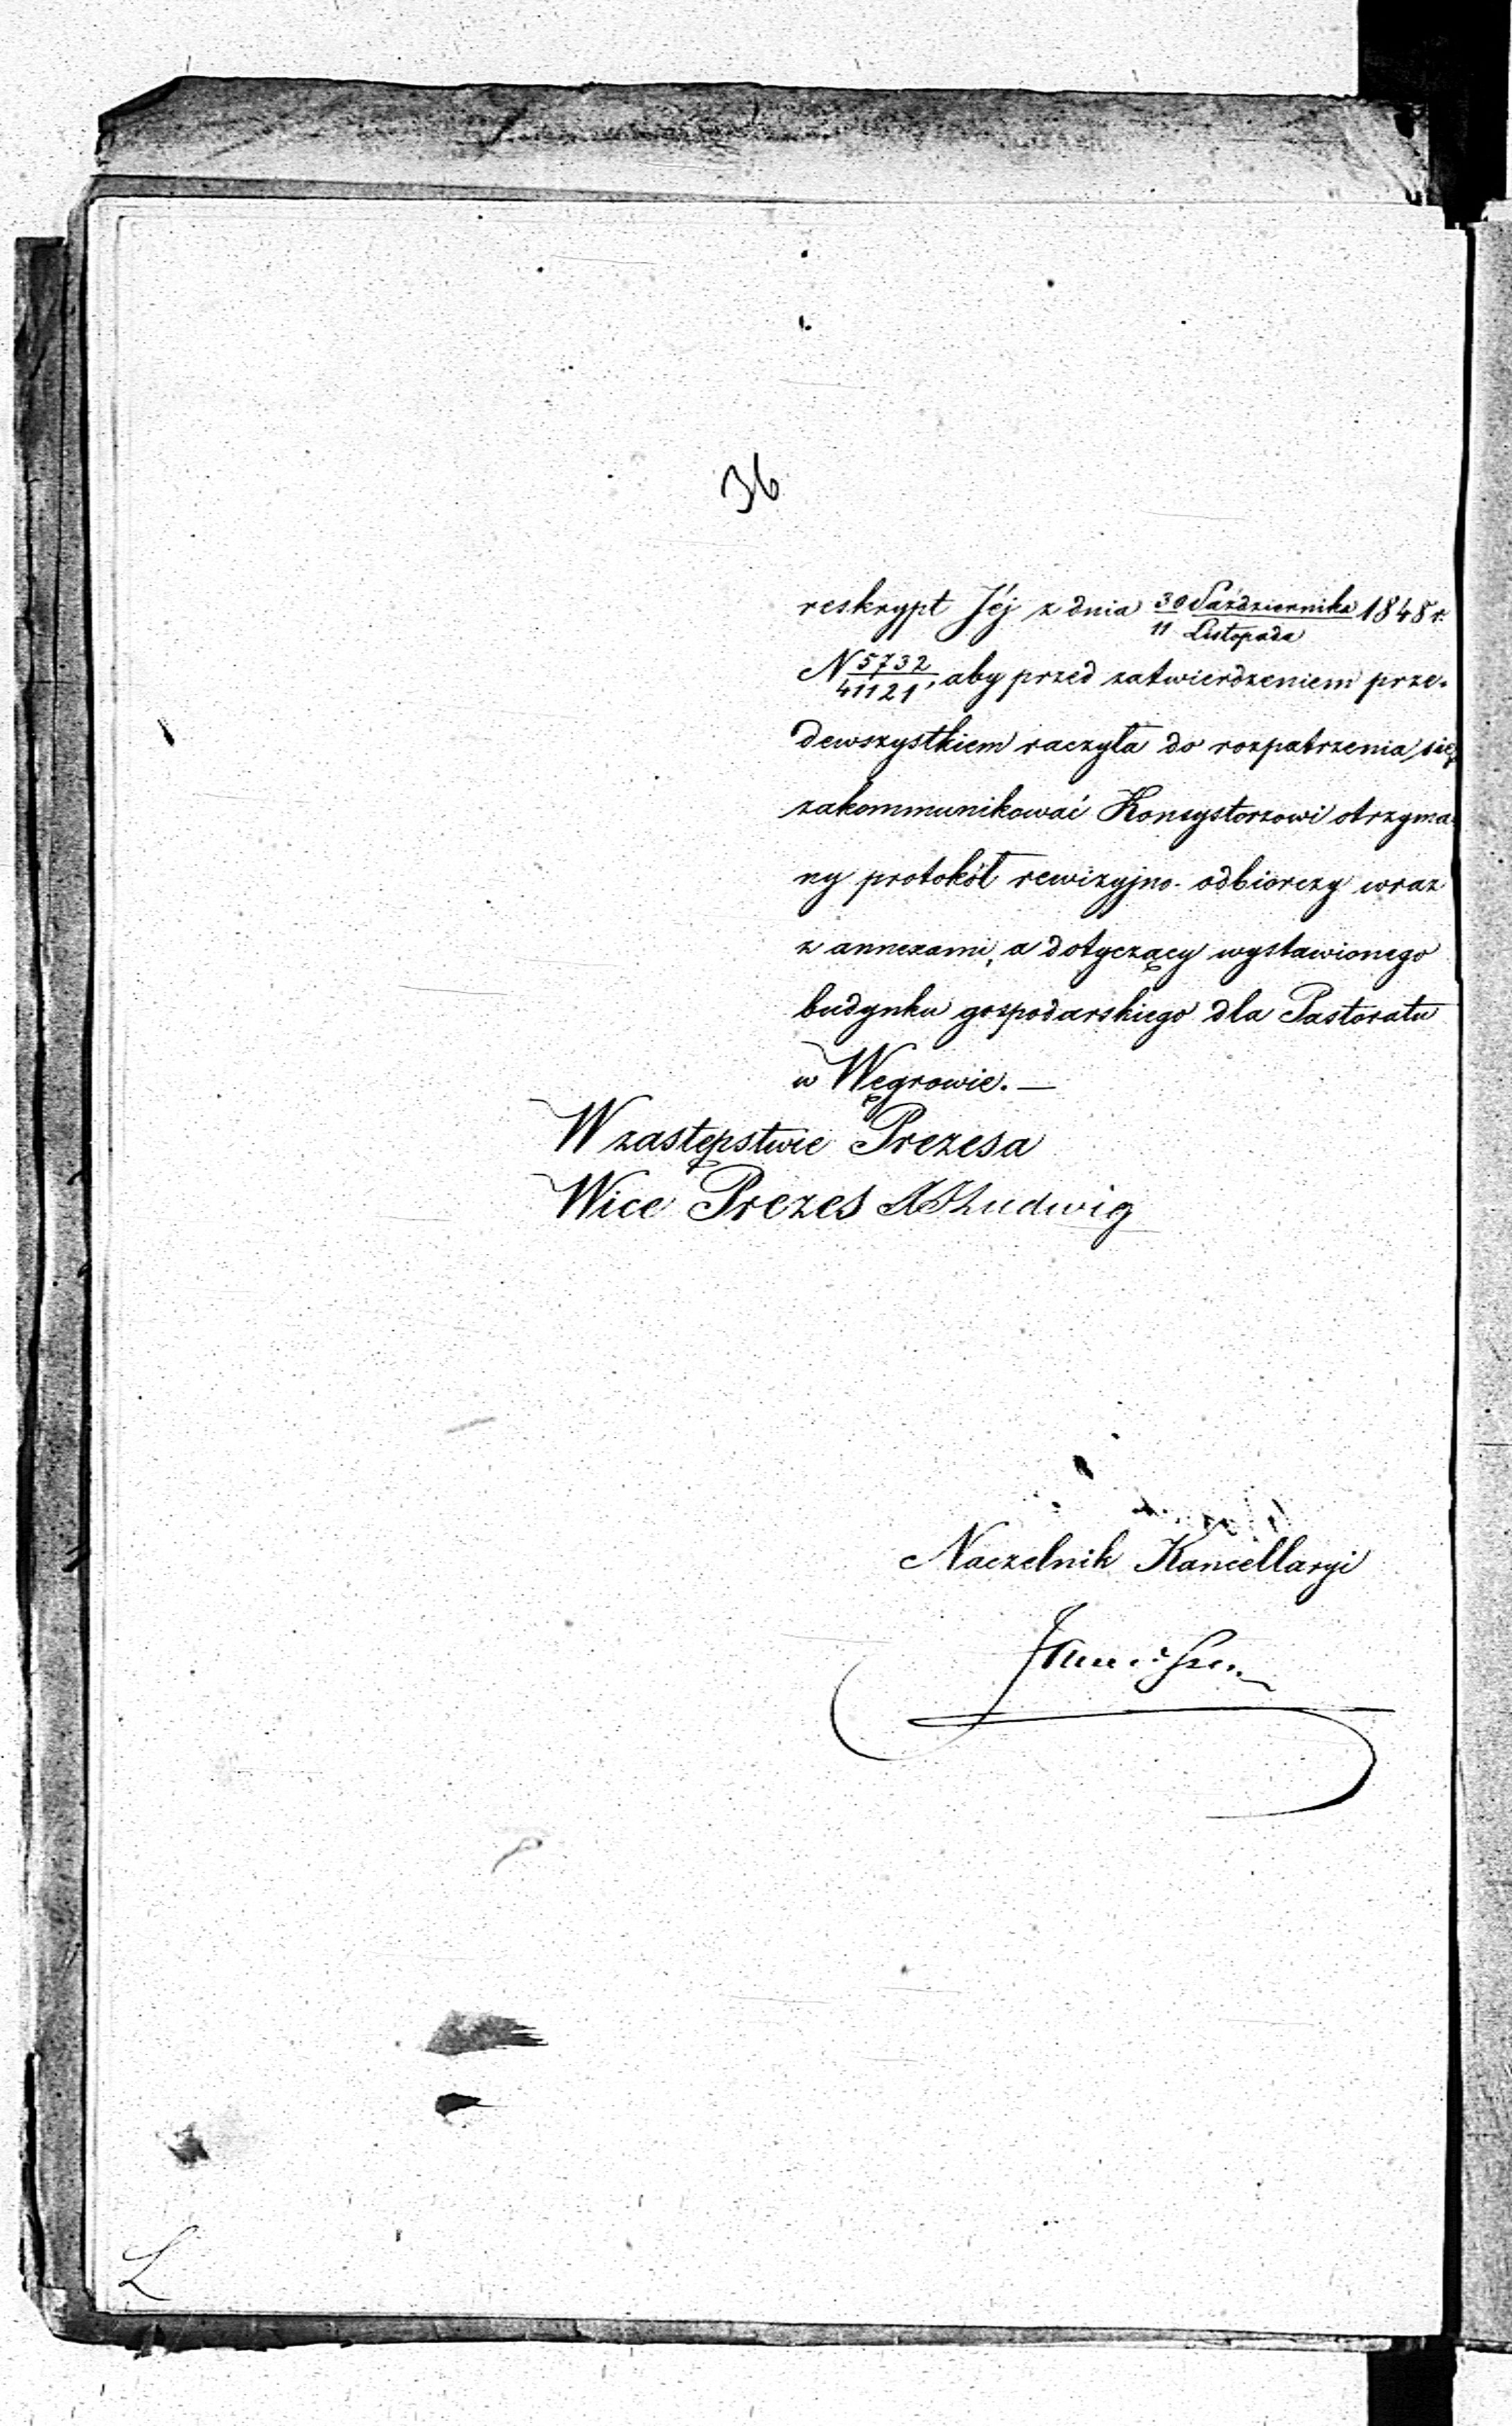 36
reskrypt Jéj z dnia 30 Października/11 Listopada 1848 r.
N 5732/41121, aby przed zatwierdzeniem prze-
dewszystkiem raczyła do rozpatrzenia się
zakommunikować Konsystorzowi otrzyma-
ny protokół rewizyjno-odbiorczy wraz
z annexami, a dotyczący wystawionego
budynku gospodarskiego dla Pastoratu
w Węgrowie. —
W zastępstwie Prezesa
Wice Prezes Ludwig
Naczelnik Kancellaryi
L